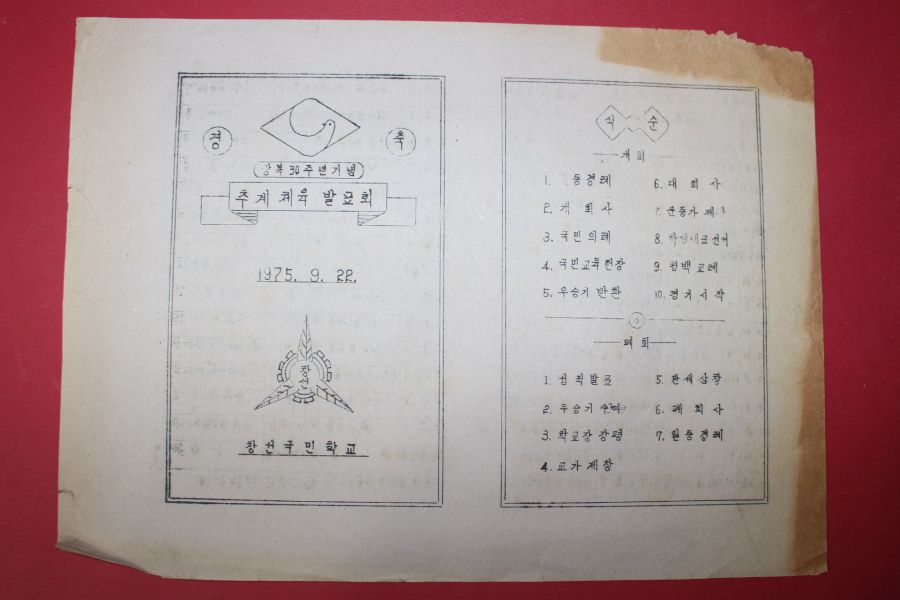 경 축
광복30주년기념
추계체육 발표회
1975. 9. 22.
창선
창선국민학교
식순
개회
1. 동경례
2. 개회사
3. 국민의례
4. 국민교육헌장
5. 우승기 반환
6. 대회사
7. 운동가 제
8. 선서
9. 청백교례
10. 경기시작
폐회
1. 성적발표
2. 우승기 수여
3. 학교장 강평
4. 교가제창
5. 만세삼창
6. 폐회사
7. 일동경례